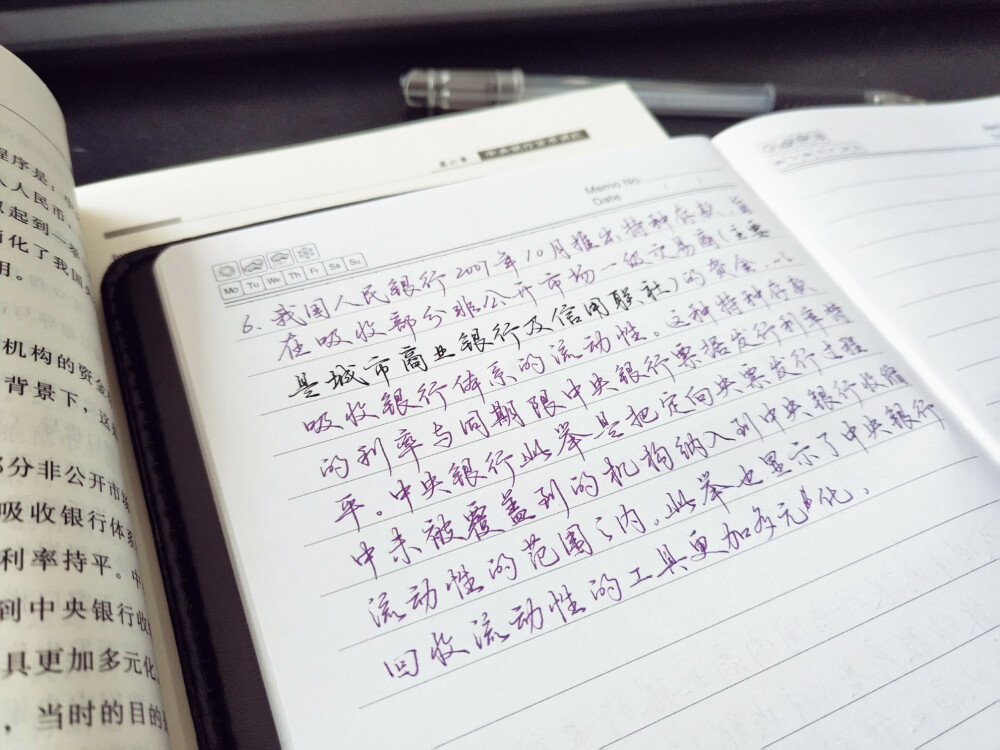 程序是:
人人民币
以起到一举
简化了我国
用。
机构的资金
背景下,这
部分非公开市
吸收银行体系
利率持平。中
到中央银行收
具更加多元化
,当时的目的
Memo No.
Date
Mo Tu We Th Fr Sa Su
6.我国人民银行2007年10月推出特种存款,旨
在吸收部分非公开市场一级交易商(主要
是城市商业银行及信用联社)的资金,以
吸收银行体系的流动性。这种特种存款
的利率与同期限中央银行票据发行利率持
平。中央银行此举是把定向央票发行过程
中未被覆盖到的机构纳入到中央银行收缩
流动性的范围之内。此举也显示了中央银行
回收流动性的工具更加多元化.